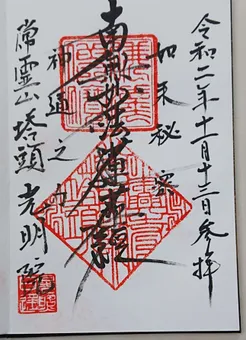 令和二年十一月十三日参拝
如来秘密
南無妙法蓮華経
神通之力
常霊山塔頭 光明院